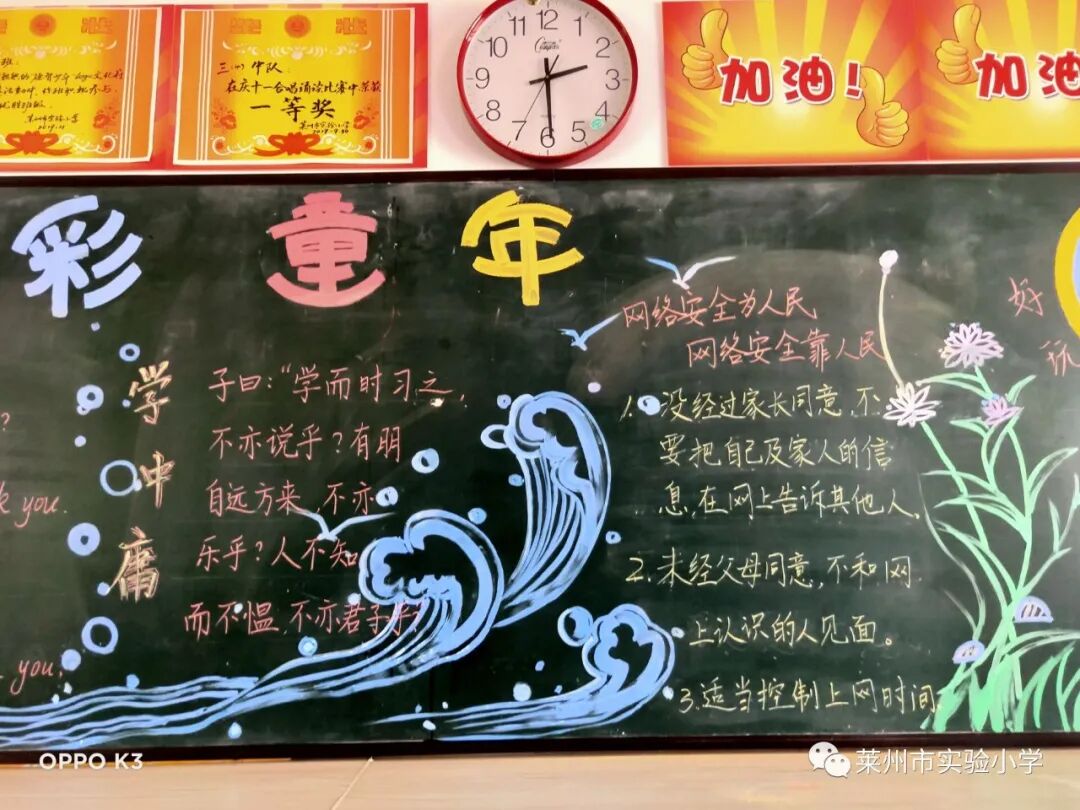 班:
莱州市实验小学
2019.11
中队:
在庆十一合唱诵读比赛中荣获
一等奖
莱州市实验小学
2019.9.30
12
11 1
10 2
9 3
8 4
7 5
6
加油!
加油
彩童年
you.
you.
学中庸
子曰:“学而时习之,
不亦说乎?有朋
自远方来,不亦
乐乎?人不知
而不愠,不亦君子乎?
网络安全为人民
网络安全靠人民
1.没经过家长同意,不
要把自己及家人的信
息,在网上告诉其他人,
2.未经父母同意,不和网
上认识的人见面。
3.适当控制上网时间,
好
玩
OPPO K3
莱州市实验小学